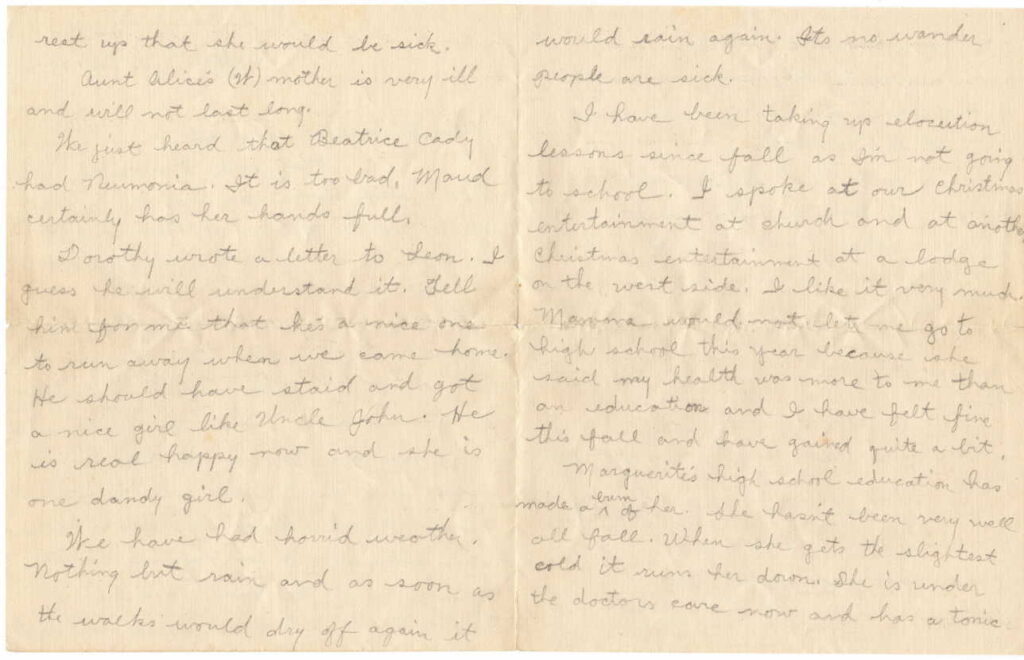 rest up that she would be sick.
Aunt Alice's (W) mother is very ill
and will not last long.
We just heard that Beatrice Cady
had Neumonia. It is too bad, Maud
certainly has her hands full.
Dorothy wrote a letter to Leon. I
guess he will understand it. Tell
him for me that he's a nice one
to run away when we came home.
He should have staid and got
a nice girl like Uncle John. He
is real happy now and she is
one dandy girl.
We have had horrid weather.
Nothing but rain and as soon as
the walks would dry off again it
would rain again. Its no wander
people are sick.
I have been taking up elocution
lessons since fall as I'm not going
to school. I spoke at our Christmas
entertainment at church and at another
Christmas entertainment at a lodge
on the west side. I like it very much.
Mamma would not let me go to
high school this year because she
said my health was more to me than
an education and I have felt fine
this fall and have gained quite a bit.
Marguerite's high school education has
made a bum of her. She hasn't been very well
all fall. When she gets the slightest
cold it runs her down. She is under
the doctors care now and has a tonic